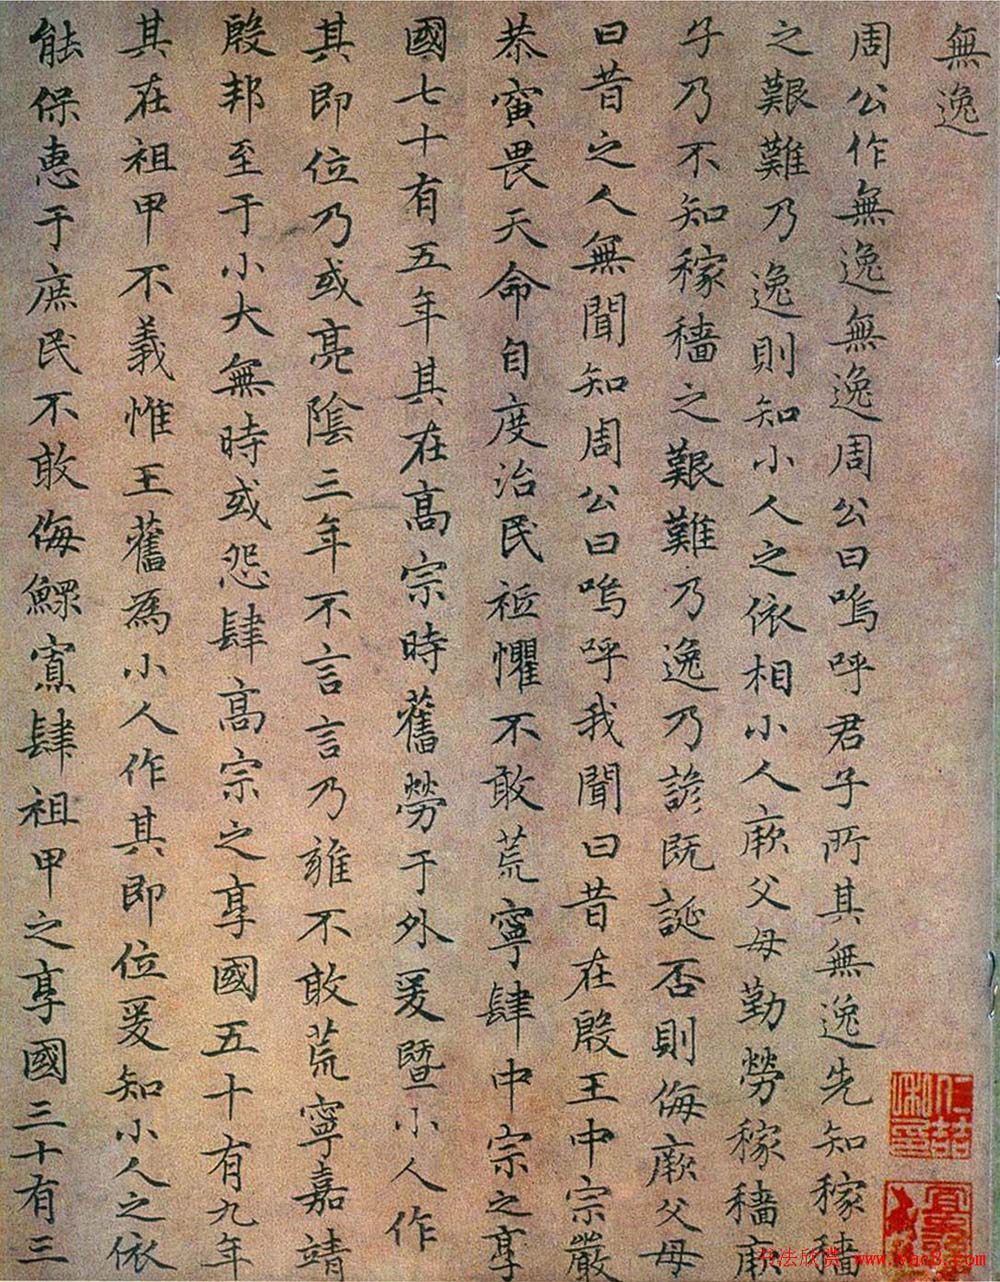 無逸
周公作無逸無逸周公曰嗚呼君子所其無逸先知稼穡
之艱難乃逸則知小人之依相小人厥父母勤勞稼穡厥
子乃不知稼穡之艱難乃逸乃諺既誕否則侮厥父母
曰昔之人無聞知周公曰嗚呼我聞曰昔在殷王中宗嚴
恭寅畏天命自度治民祗懼不敢荒寧肆中宗之享
國七十有五年其在高宗時舊勞于外爰暨小人作
其即位乃或亮陰三年不言言乃雍不敢荒寧嘉靖
殷邦至于小大無時或怨肆高宗之享國五十有九年
其在祖甲不義惟王舊為小人作其即位爰知小人之依
能保惠于庶民不敢侮鰥寡肆祖甲之享國三十有三
書法欣賞